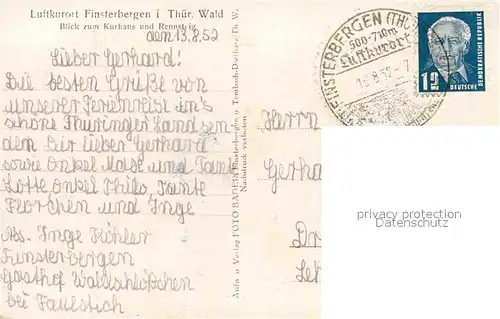 Luftkurort Finsterbergen i Thür. Wald
Blick zum Kurhaus und Rennsteig
den 13.8.52
Lieber Gerhard!
Die besten Grüße von
unserer Ferienreise in's
schöne Thüringer Land sen-
den Dir lieber Gerhard
sowie Onkel Mast und Tante
Lotte Onkel Philo, Tante
Florchen und Inge
Abs. Inge Köhler
Finsterbergen
Gasthof Waldschlößchen
bei Faulstich
Aufn u Verlag FOTO BÄDER Finsterbergen u. Tambach-Dietharz Th. W.
Nachdruck verboten
FINSTERBERGEN (THÜ
500-710m
Luftkurort
8.52-7
12
DEUTSCHE
DEMOKRATISCHE REPUBLIK
Herrn
Gerha
Dr
privacy protection
watermark